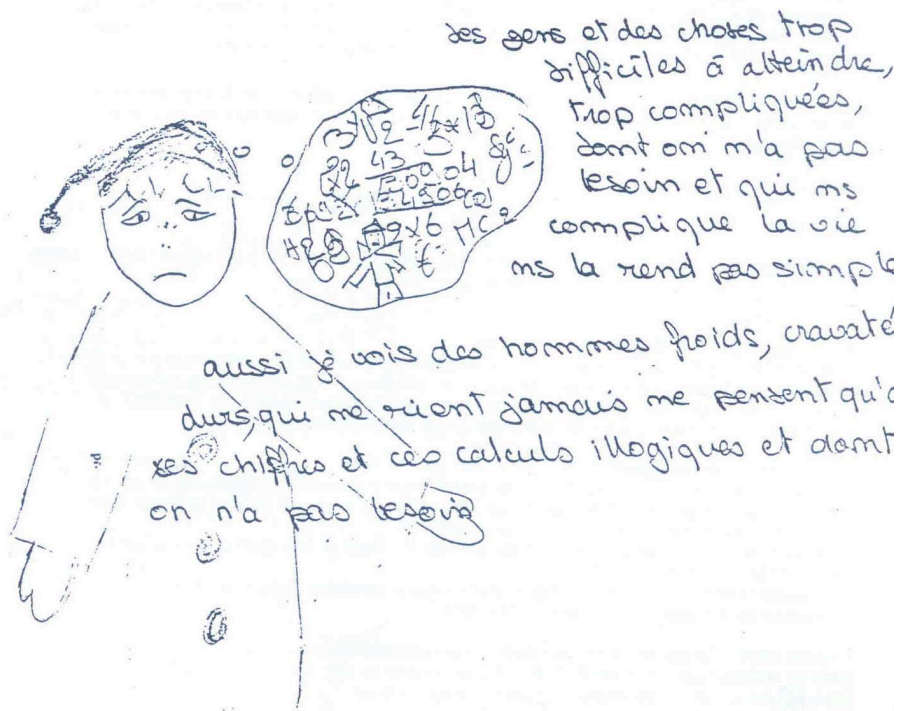 des gens et des choses trop
difficiles à atteindre,
trop compliquées,
dont on n'a pas
besoin et qui ns
complique la vie
ns la rend pas simple
aussi je vois des hommes froids, cravaté
durs, qui ne rient jamais ne pensent qu'a
ses chiffres et ces calculs illogiques et dont
on n'a pas besoin
MC²